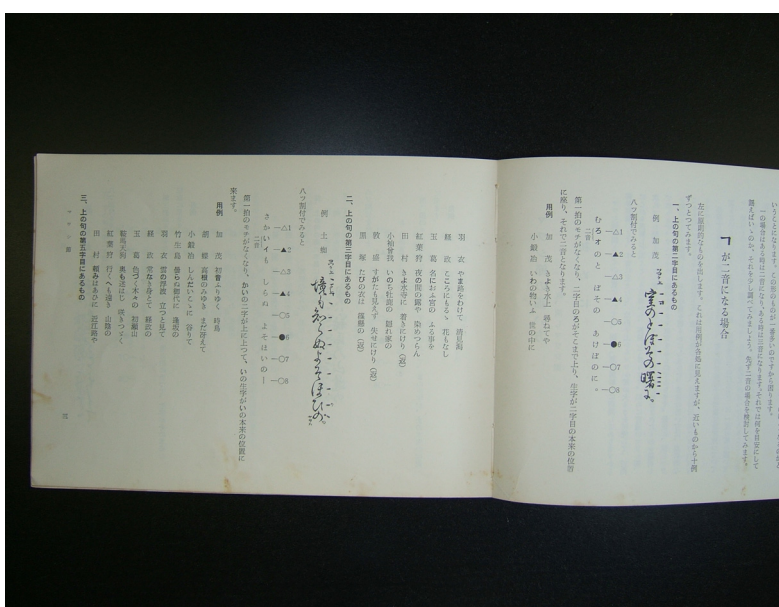 いうことになります。この形のものが一番多いのですから困ります。
一の場合はある時は二音になり、ある時は三音になります。それでは何を目安にして
謡えばいゝのか、それを少し調べてみましょう。先ず二音の場合を検討してみます。
が二音になる場合
左に規則的なものを出します。これは用例が各処に見えますが、近いものから十例
ずつとつてみます。
一、上の句の第二字目にあるもの
例 加茂
室のとぼその曙に。
八ツ割付でみると
△1 ▲2 △3 ▲4 ○5 ●6 ○7 ○8
むろオのと ぼその あけぼのに。
二音
第一拍のモチがなくなり、二字目のろがそこまで上り、生字が二字目の本来の位置
に座り、それで二音となります。
用例
加茂 きよき水上 尋ねてや
小鍛治 いわの物いふ 世の中に
羽衣 やま路をわけて 清見潟
経政 こころにもるゝ 花もなし
玉葛 名におふ宮の ふる事を
紅葉狩 夜の間の露や 染めつらん
田村 きよ水寺に 着きにけり(返)
小袖曽我 いのち牡鹿の 隠れ家の
敦盛 すがたも見えず 失せにけり(返)
黒塚 たびの衣は 篠懸の(返)
二、上の句の第三字目にあるもの
例 土蜘
境も知らぬよそほひの。
八ツ割付でみると
△1 ▲2 △3 ▲4 ○5 ●6 ○7 ○8
さかいイも しらぬ よそほいのー
二音
第一拍のモチがなくなり、かいの二字が上に上つて、いの生字がいの本来の位置に
来ます。
用例
加茂 初音ふりゆく 時鳥
胡蝶 高根のみゆき まだ冴えて
小鍛治 しんだいこゝに 谷りて
竹生島 曇らぬ御代に 逢坂の
羽衣 雲の浮波 立つと見て
経政 常なき身とて 経政の
玉葛 色づく木々の 初瀬山
鞍馬天狗 奥も迷はじ 咲きつゞく
紅葉狩 行くへも遠き 山陰の
田村 頼みはあひに 近江路や
三、上の句の第五字目にあるもの